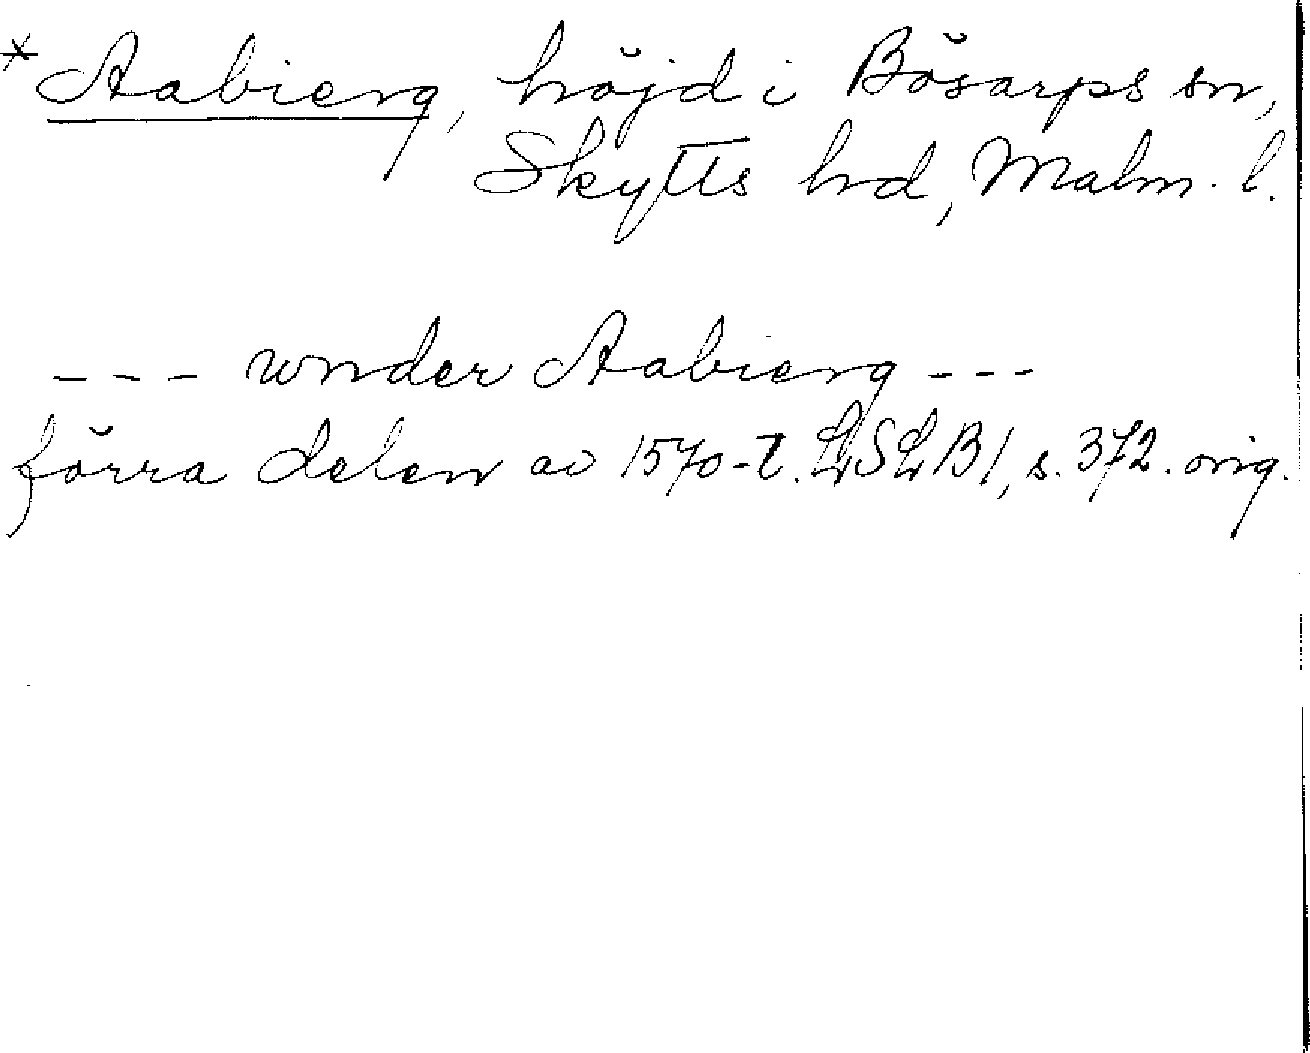 *Aabierg, höjd i Bösarps sn,
Skytts hd, Malm. l.
--- wnder Aabierg ---
förra delen av 1570-t. LSLB1, s. 372. orig.